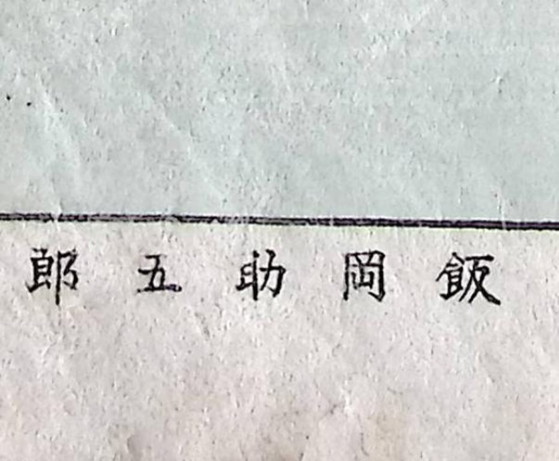 飯岡助五郎